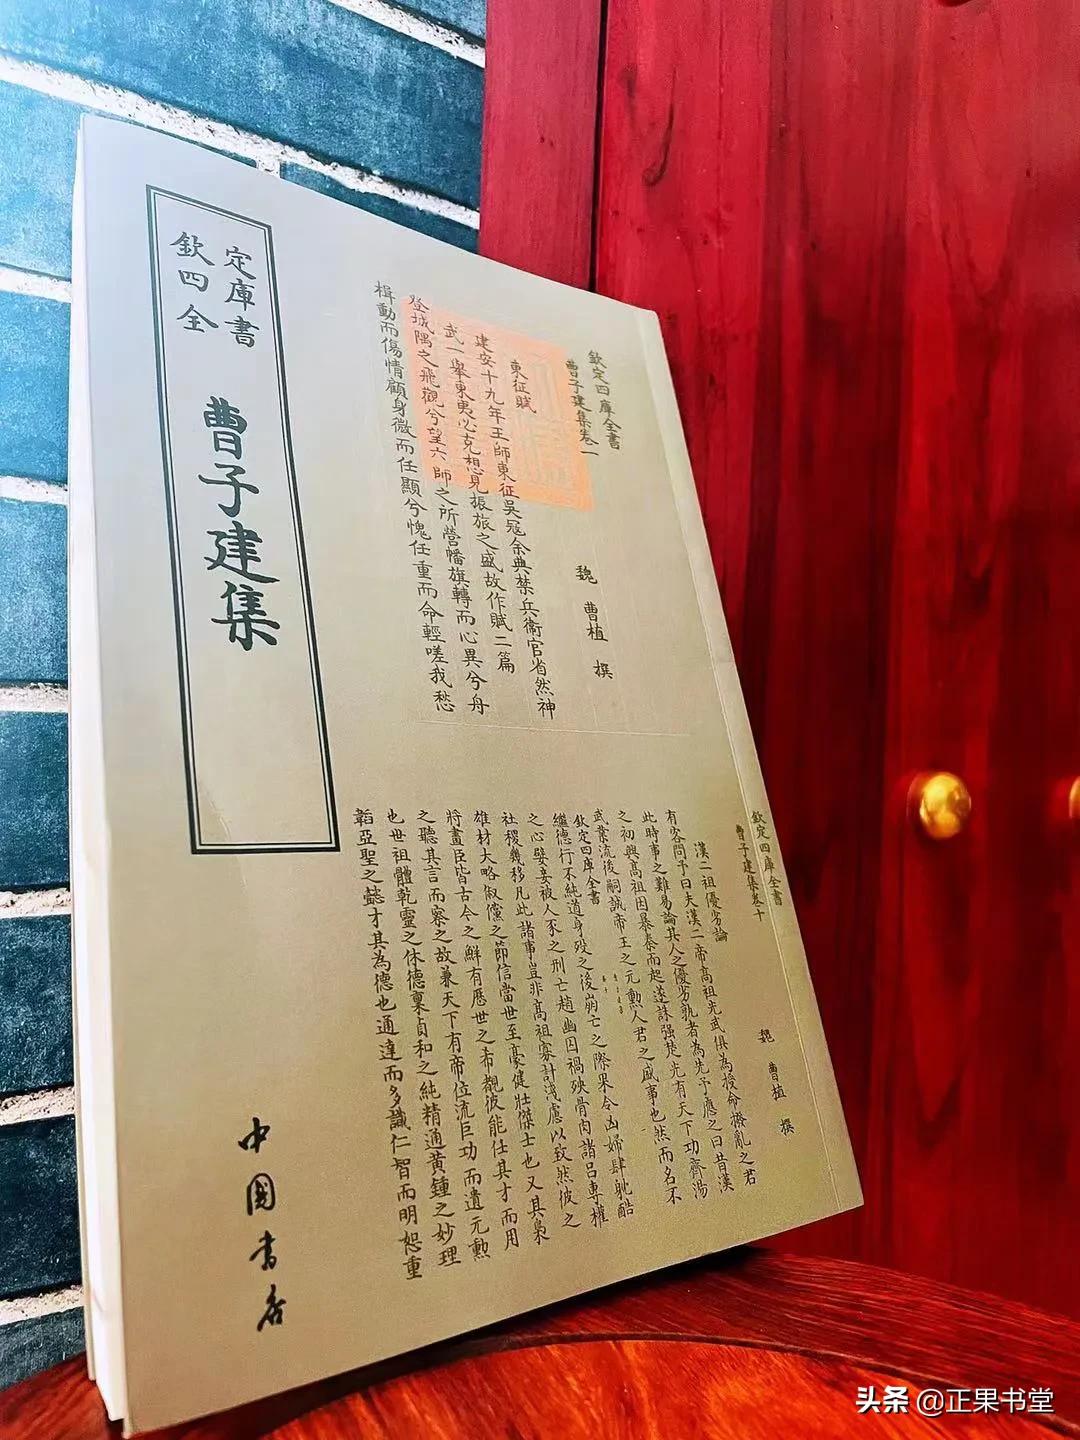 欽定
四庫
全書
曹子建集
欽定四庫全書
曹子建集卷一
魏 曹植 撰
東征賦
建安十九年王師東征吳冦余典禁兵衞官省然神
武一舉東夷必克想見振旅之盛故作賦二篇
登城隅之飛觀兮望六師之所營幡旗轉而心異兮舟
楫動而傷情顧身微而任顯兮愧任重而命輕嗟我愁
欽定四庫全書
曹子建集卷十
魏 曹植 撰
漢二祖優劣論
有客問予曰夫漢二帝高祖光武俱為授命撥亂之君
此時事之難易論其人之優劣孰者為先予應之曰昔漢
之初興高祖因暴秦而起遂誅强楚光有天下功齊湯
武業流後嗣誠帝王之元勲人君之盛事也然而名不
欽定四庫全書
繼德行不純道身歿之後崩亡之際果令凶婦肆酖酷
之心嬖妾被人豕之刑亡趙幽囚禍殃骨肉諸呂專權
社稷幾移凡此諸事豈非高祖寡計淺慮以致然彼之
雄材大略俶儻之節信當世至豪健壯傑士也又其梟
將畫臣皆古今之鮮有歷世之希覩彼能任其才而用
之聽其言而察之故兼天下有帝位流巨功而遺元勲
也世祖體乾靈之休德稟貞和之純精通黄鍾之妙理
韜亞聖之懿才其為德也通達而多識仁智而明恕重
中国书店
头条 @正果书堂